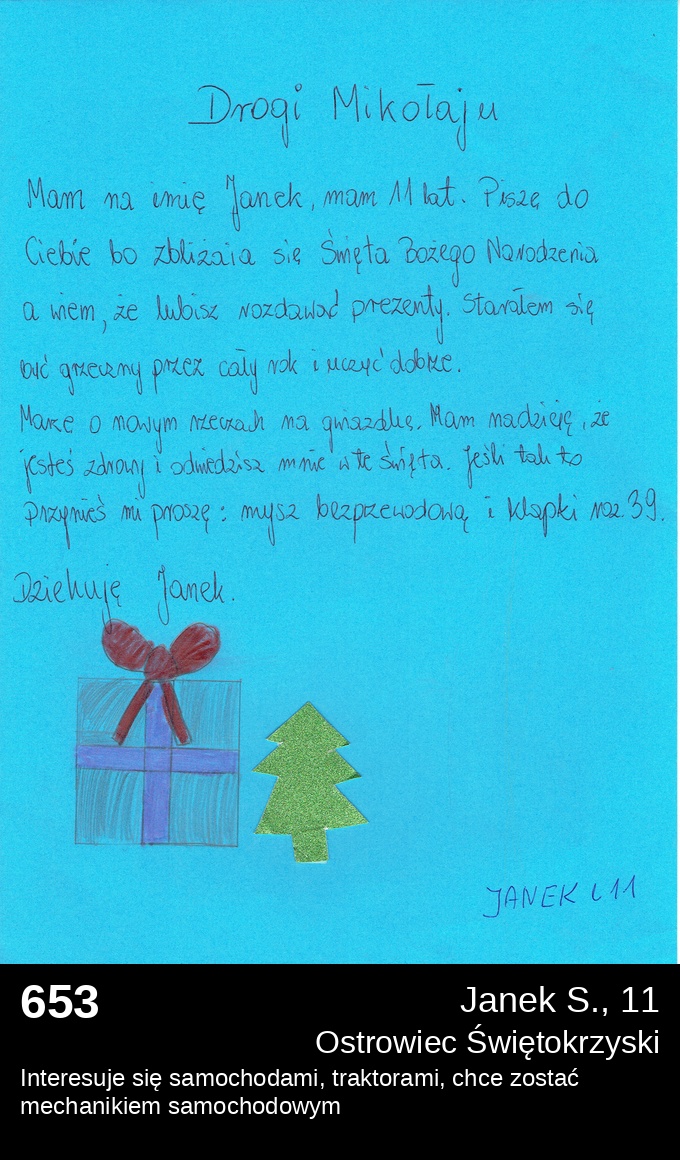 Drogi Mikołaju
Mam na imię Janek, mam 11 lat. Piszę do
Ciebie bo zbliżaia się Święta Bożego Narodzenia
a wiem, że lubisz rozdawać prezenty. Starałem się
być grzeczny przez cały rok i uczyć dobrze.
Marzę o nowym rzeczach na gwiazdkę. Mam nadzieję, że
jesteś zdrowy i odwiedzisz mnie w te święta. Jeśli tak to
Przynieś mi proszę: mysz bezprzewodową i klapki roz. 39.
Dziekuję Janek.
JANEK L 11
653
Janek S., 11
Ostrowiec Świętokrzyski
Interesuje się samochodami, traktorami, chce zostać
mechanikiem samochodowym